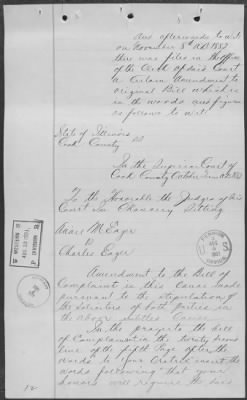 And afterwards to wit
on November 8th A.D. 1882
there was filed in the office
of the Clerk of said Court
a certain Amendment to
original Bill which is
in the words and figures
as follows to wit
State of Illinois
Cook County SS
In the Superior Court of
Cook County October Term A.D. 1882
To the Honorable the Judges of said
Court In Chancery Sitting
E. Eager
vs
Charles Eager
Amendment to the Bill of
Complaint in this Cause made
pursuant to the stipulation of
the solicitors of both parties in
the above entitled Cause
In the prayer to the bill
of Complaint in the twenty
line of the fifth page after the
words to Your Oratrix insert the
words following "that your
honors will require the said
12